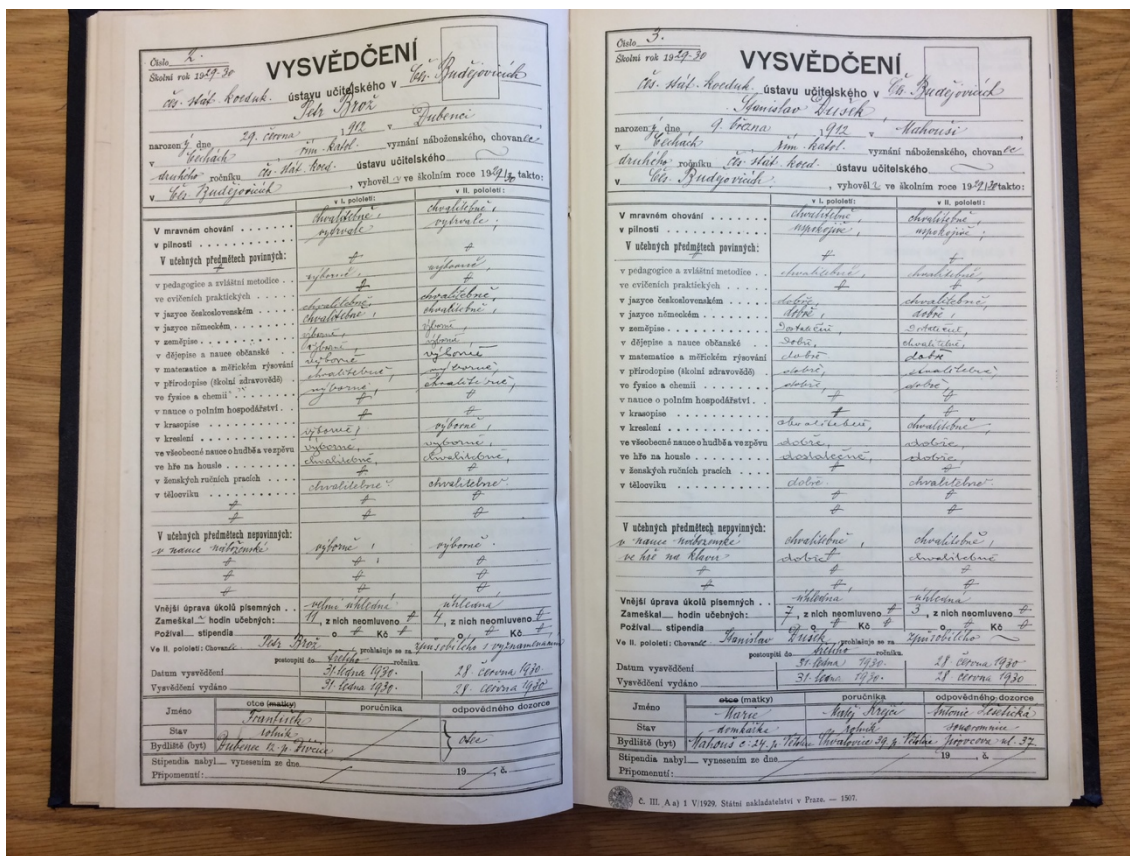 Číslo 2.
Školní rok 1929-30
VYSVĚDČENÍ
čes. stát. koeduk. ústavu učitelského v Čes. Budějovicích
Petr Brož
narozený dne 29. června 1912 v Dubenci
v Čechách řím. katol. vyznání náboženského, chovanec
druhého ročníku čes. stát. koed. ústavu učitelského
v Čes. Budějovicích, vyhověl ve školním roce 1929/30 takto:
v I. pololetí: v II. pololetí:
V mravném chování chvalitebné chvalitebné,
v pilnosti vytrvale vytrvale;
V učebných předmětech povinných:
v pedagogice a zvláštní metodice výborně, výborně,
ve cvičeních praktických
v jazyce československém chvalitebně, chvalitebně,
v jazyce německém chvalitebně, chvalitebně,
v zeměpise výborně, výborně,
v dějepise a nauce občanské výborně, výborně
v matematice a měřickém rýsování výborně výborně
v přírodopise (školní zdravovědě) chvalitebně, výborně,
ve fysice a chemii výborně, chvalitebně,
v nauce o polním hospodářství
v krasopise
v kreslení výborně, výborně,
ve všeobecné nauce o hudbě a ve zpěvu výborně, výborně,
ve hře na housle chvalitebně, chvalitebně,
v ženských ručních pracích
v tělocviku chvalitebně. chvalitebně.
V učebných předmětech nepovinných:
v nauce náboženské výborně, výborně.
Vnější úprava úkolů písemných velmi úhledná úhledná
Zameškal hodin učebných: 11, z nich neomluveno 4, z nich neomluveno
Požíval stipendia o Kč o Kč
Ve II. pololetí: Chovanec Petr Brož prohlašuje se za způsobilého s vyznamenáním
postoupiti do třetího ročníku.
Datum vysvědčení 31. ledna 1930. 28. června 1930
Vysvědčení vydáno 31. ledna 1930. 28. června 1930
Jméno otce (matky) poručníka odpovědného dozorce
František
Stav rolník otec
Bydliště (byt) Dubenec 12
Stipendia nabyl vynesením ze dne 19 , č.
Připomenutí:
Číslo 3.
Školní rok 1929-30
VYSVĚDČENÍ
čes. stát. koeduk. ústavu učitelského v Čes. Budějovicích
Stanislav Dušek
narozený dne 9. března 1912 v Mahouši
v Čechách řím. katol. vyznání náboženského, chovanec
druhého ročníku čes. stát. koed. ústavu učitelského
v Čes. Budějovicích, vyhověl ve školním roce 1929/30 takto:
v I. pololetí: v II. pololetí:
V mravném chování chvalitebné chvalitebné,
v pilnosti uspokojivě, uspokojivě;
V učebných předmětech povinných:
v pedagogice a zvláštní metodice chvalitebně, chvalitebně,
ve cvičeních praktických
v jazyce československém dobře, chvalitebně,
v jazyce německém dobře, dobře,
v zeměpise dostatečně, dostatečně,
v dějepise a nauce občanské dobře, chvalitebně,
v matematice a měřickém rýsování dobře dobře
v přírodopise (školní zdravovědě) dobře, chvalitebně,
ve fysice a chemii dobře, dobře,
v nauce o polním hospodářství
v krasopise
v kreslení chvalitebně, chvalitebně,
ve všeobecné nauce o hudbě a ve zpěvu dobře, dobře,
ve hře na housle dostatečně, dobře,
v ženských ručních pracích
v tělocviku dobře. chvalitebně.
V učebných předmětech nepovinných:
v nauce náboženské chvalitebně, chvalitebně,
ve hře na klavír dobře chvalitebně
Vnější úprava úkolů písemných úhledná, úhledná
Zameškal hodin učebných: 7, z nich neomluveno 3, z nich neomluveno
Požíval stipendia o Kč o Kč
Ve II. pololetí: Chovanec Stanislav Dušek prohlašuje se za způsobilého
postoupiti do třetího ročníku.
Datum vysvědčení 31. ledna 1930. 28. června 1930
Vysvědčení vydáno 31. ledna 1930. 28 června 1930
Jméno otce (matky) poručníka odpovědného dozorce
Marie Matěj Krejčí Antonie
Stav domkářka rolník soukromnice
Bydliště (byt) Mahouš č. 24, p. Netolice Chvalovice 39, p. Netolice ul. 37.
Stipendia nabyl vynesením ze dne 19 , č.
Připomenutí:
Č. III. A a) 1 V/1929. Státní nakladatelství v Praze. — 1507.